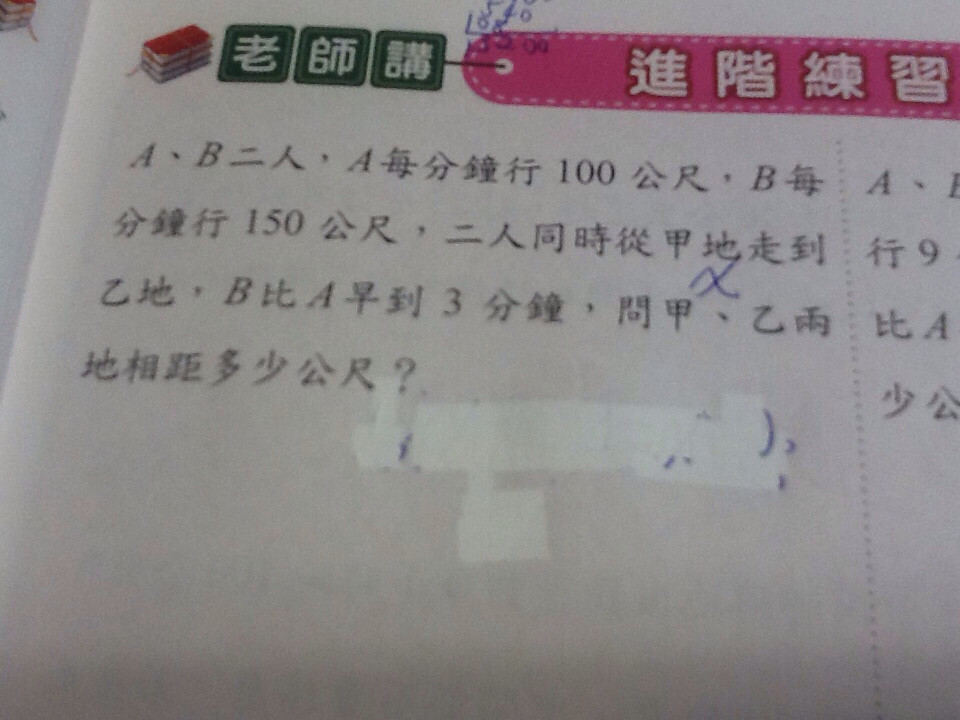 老師講
進階練習
A、B二人，A每分鐘行 100 公尺，B每
分鐘行 150 公尺，二人同時從甲地走到
乙地，B比A早到 3 分鐘，問甲、乙兩
地相距多少公尺？
x
A、B
行 9
比A
少公